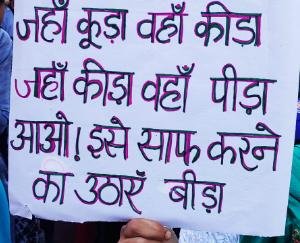 जहाँ कूड़ा वहाँ कीडा
जहाँ कीडा वहाँ पीड़ा
आओ! इसे साफ करने
का उठाएँ बीड़ा